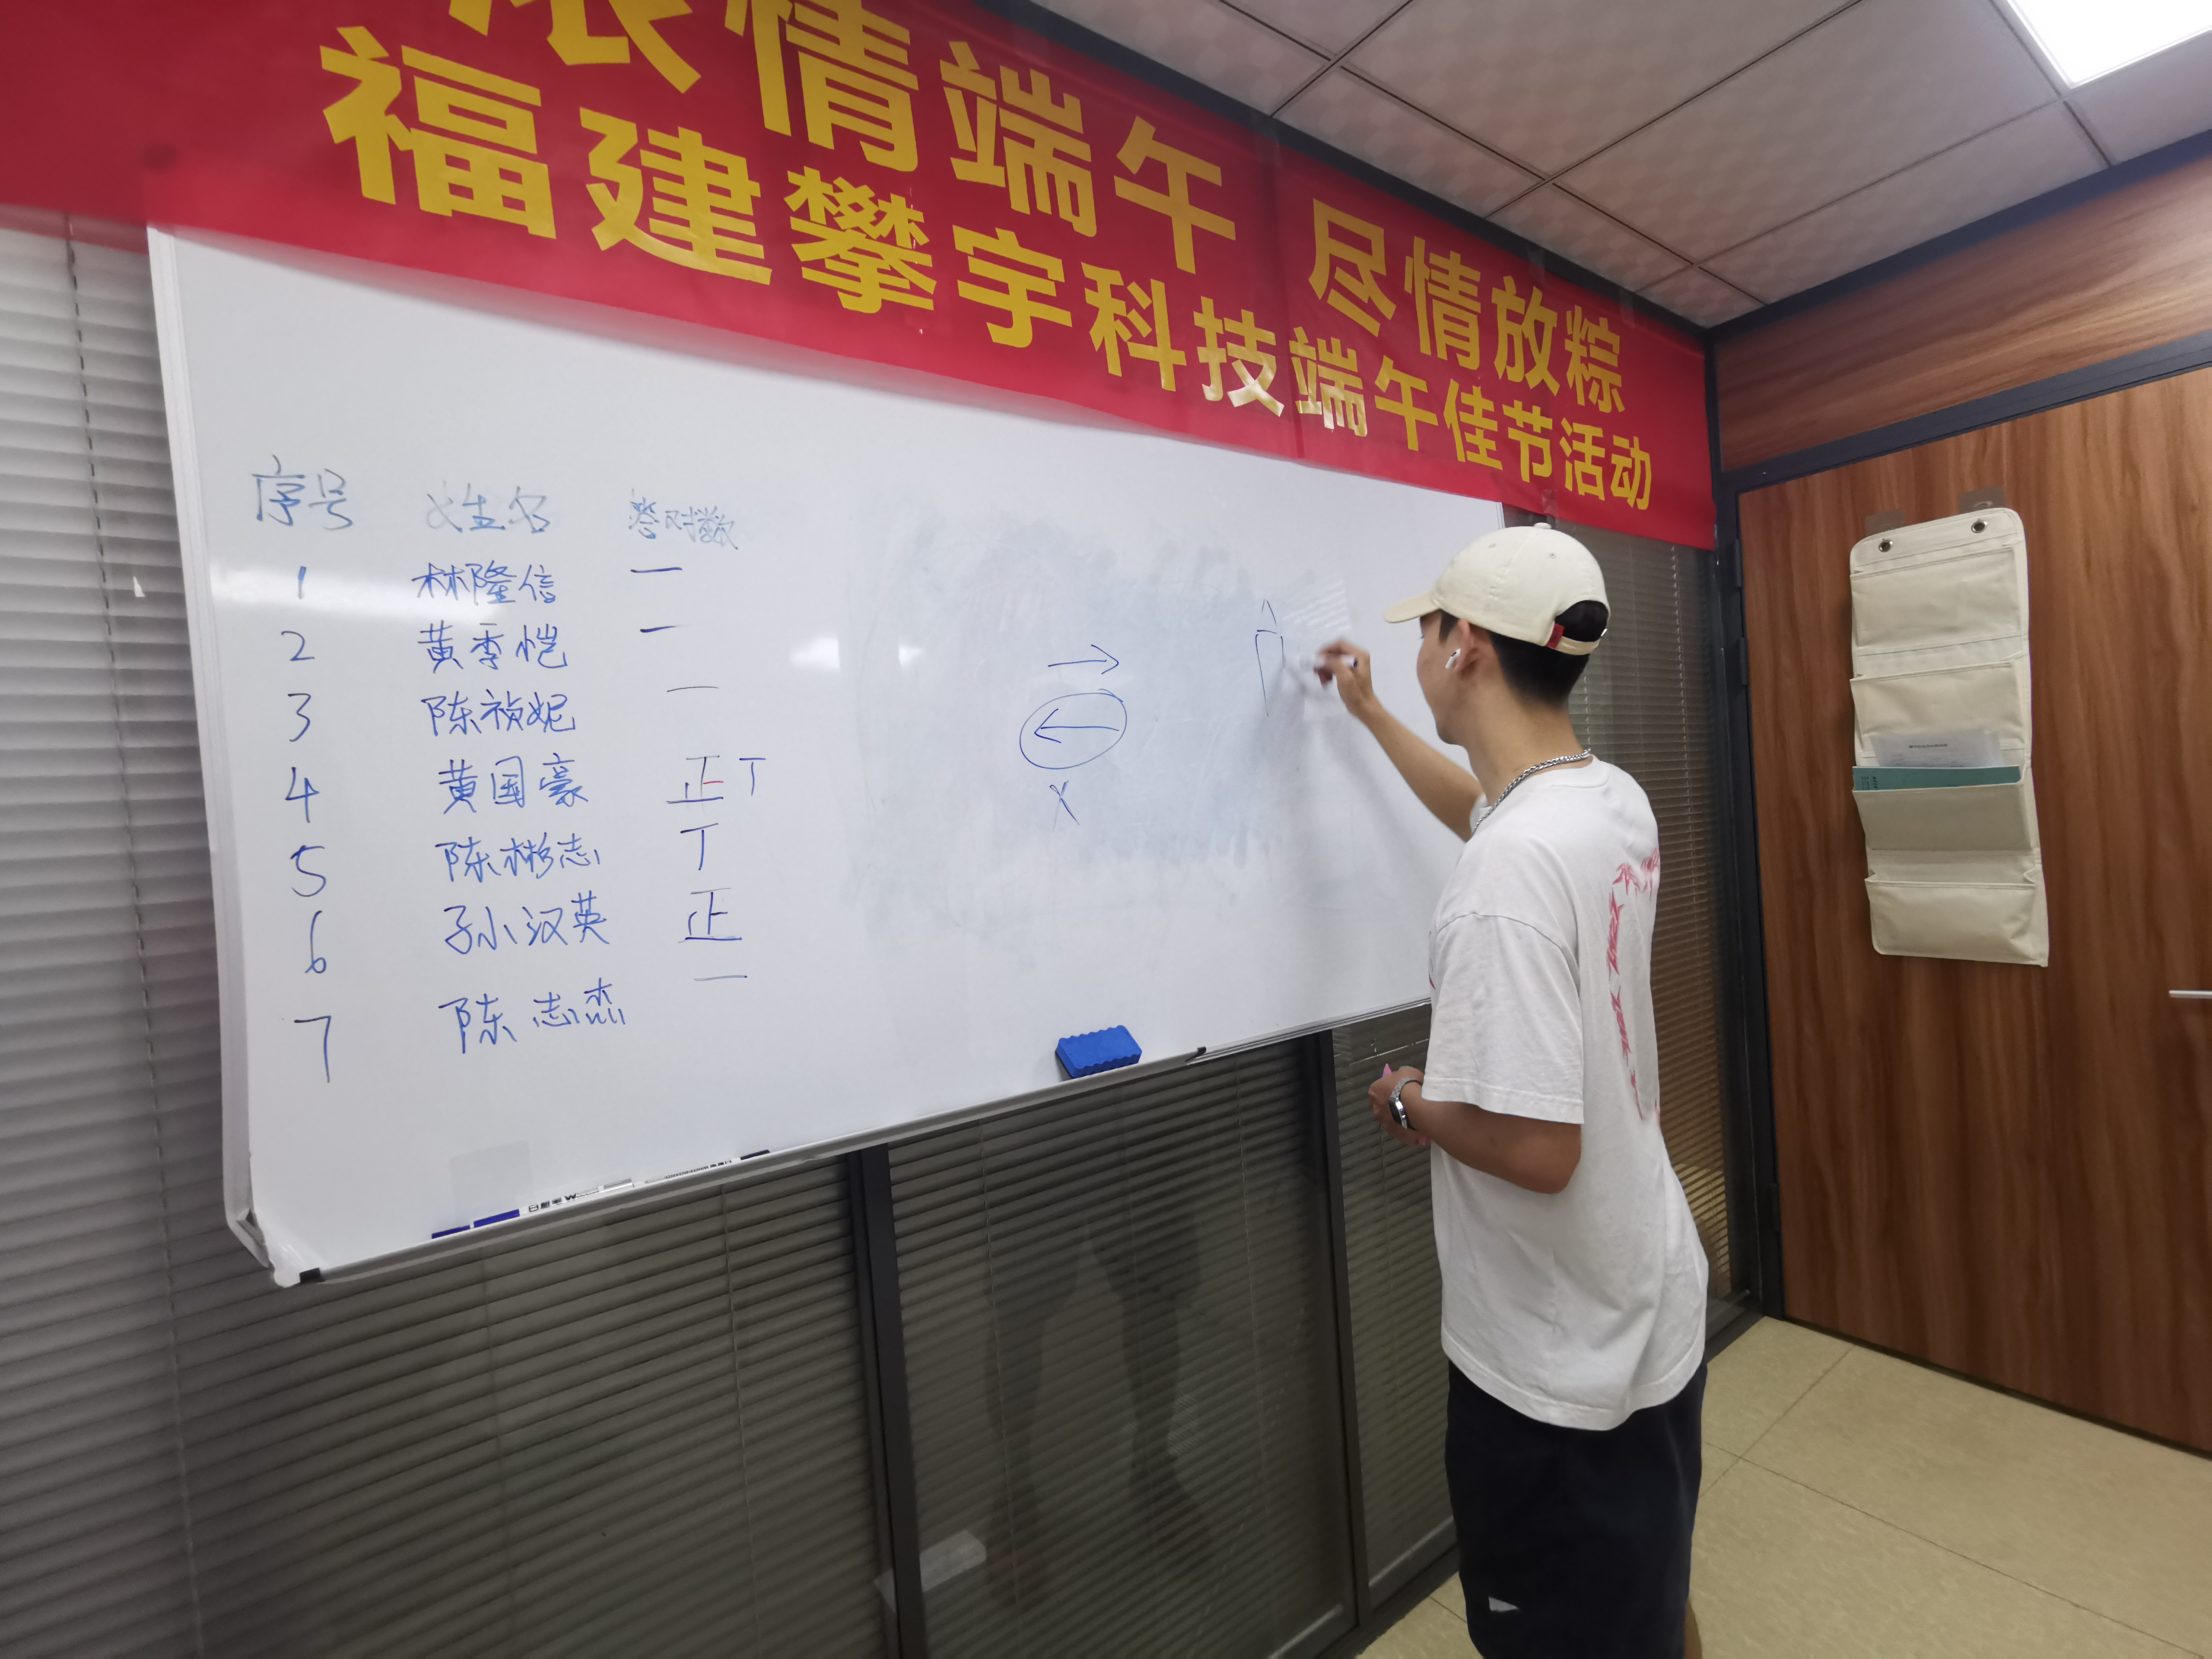 浓情端午 尽情放粽
福建攀宇科技端午佳节活动
序号 姓名 答对数
1 林隆信 一
2 黄季恺 一
3 陈祯妮 一
4 黄国豪 正丅
5 陈彬志 丅
6 孙汉英 正
7 陈志杰 一
X